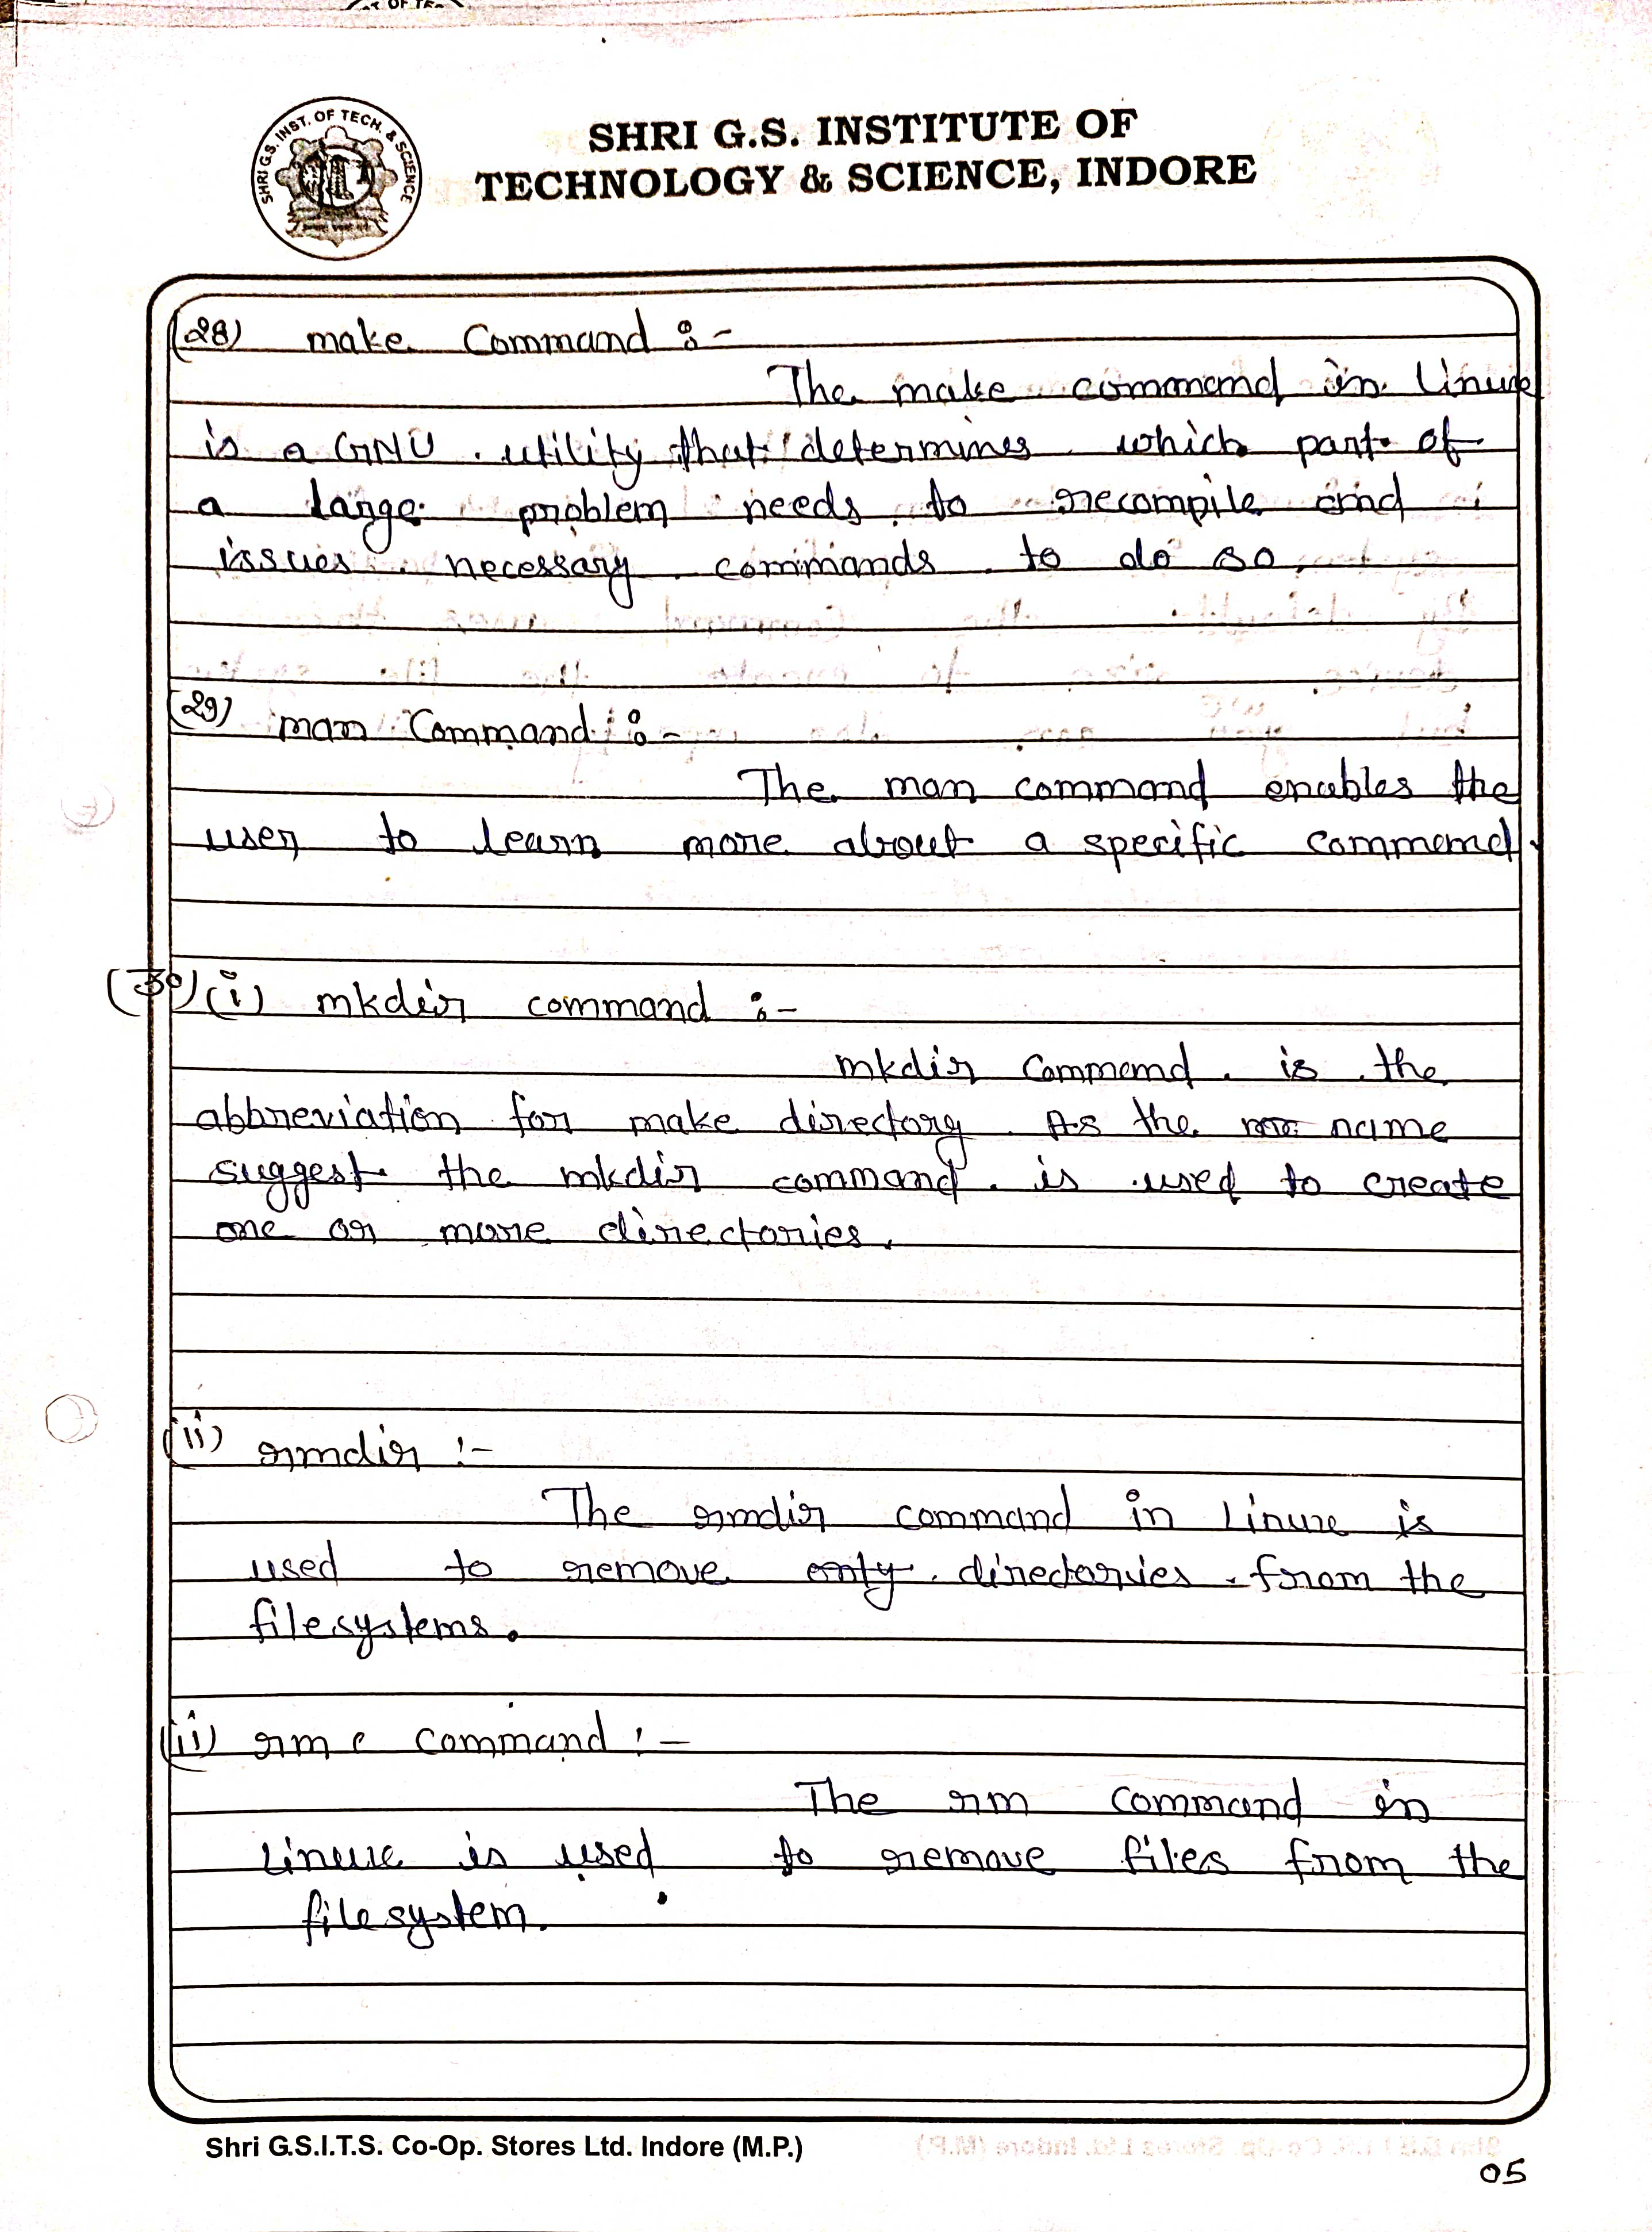 SHRI G.S. INST. OF TECH. & SCIENCE
SHRI G.S. INSTITUTE OF
TECHNOLOGY & SCIENCE, INDORE
(28) make Command :-
The make command in Linux
is a GNU utility that determines which part of
a large problem needs to recompile and
issues necessary commands to do so.
(29) man Command :-
The man command enables the
user to learn more about a specific command.
(30) (i) mkdir command :-
mkdir Command is the
abbreviation for make directory. As the name
suggest the mkdir command is used to create
one or more directories.
(ii) rmdir :-
The rmdir command in Linux is
used to remove directories from the
filesystems.
(ii) rm command :-
The rm command in
Linux is used to remove files from the
filesystem.
Shri G.S.I.T.S. Co-Op. Stores Ltd. Indore (M.P.)
05